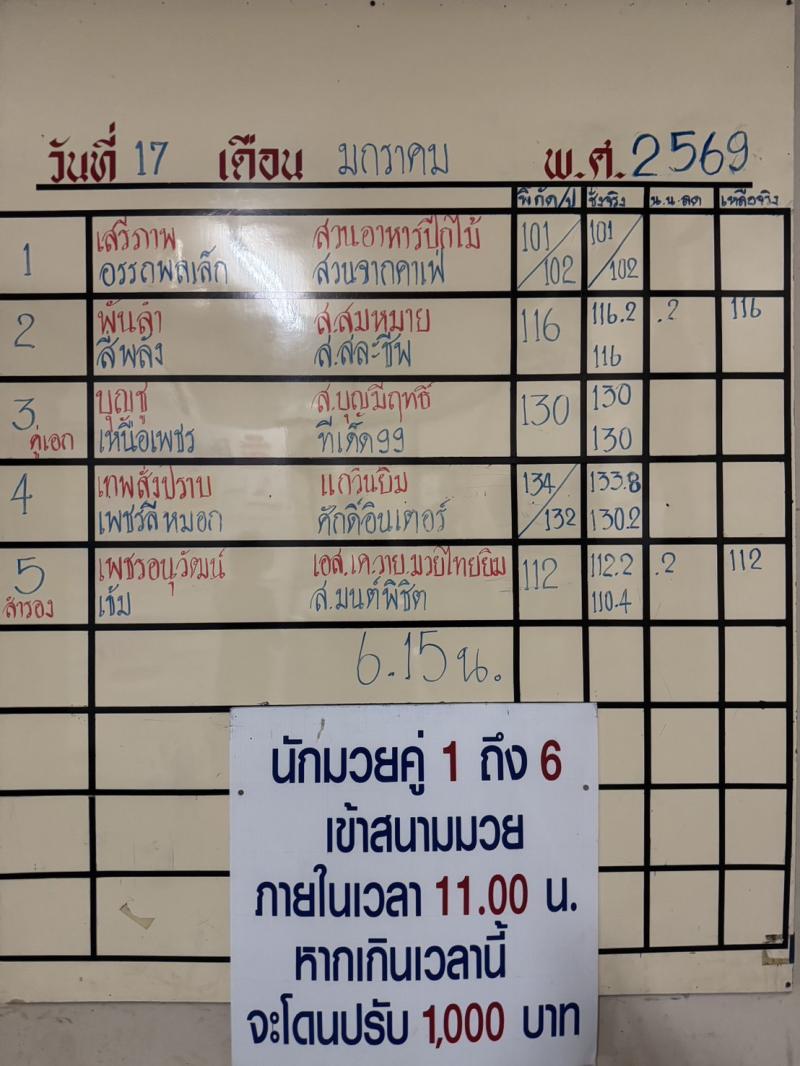 วันที่ 17 เดือน มกราคม พ.ศ. 2569
พิกัด/ป ชั่งจริง น.น.ลด เหลือจริง
1 เสรีภาพ สวนอาหารปีกไม้ 101/102 101/102
อรรถพลเล็ก สวนจากคาเฟ่
2 พันลำ ส.สมหมาย 116 116.2 .2 116
สีพลัง ส.สละชีพ 116
3 บุญชู ส.บุญมีฤทธิ์ 130 130
คู่เอก เหนือเพชร ทีเด็ด99 130
4 เทพสั่งปราบ แถวินยิม 134/132 133.8
เพชรสีหมอก ศักดิ์อินเตอร์ 130.2
5 เพชรอนุวัฒน์ เอส.เค.วาย.มวยไทยยิม 112 112.2 .2 112
สำรอง เข้ม ส.มนต์พิชิต 110.4
6.15 น.
นักมวยคู่ 1 ถึง 6
เข้าสนามมวย
ภายในเวลา 11.00 น.
หากเกินเวลานี้
จะโดนปรับ 1,000 บาท